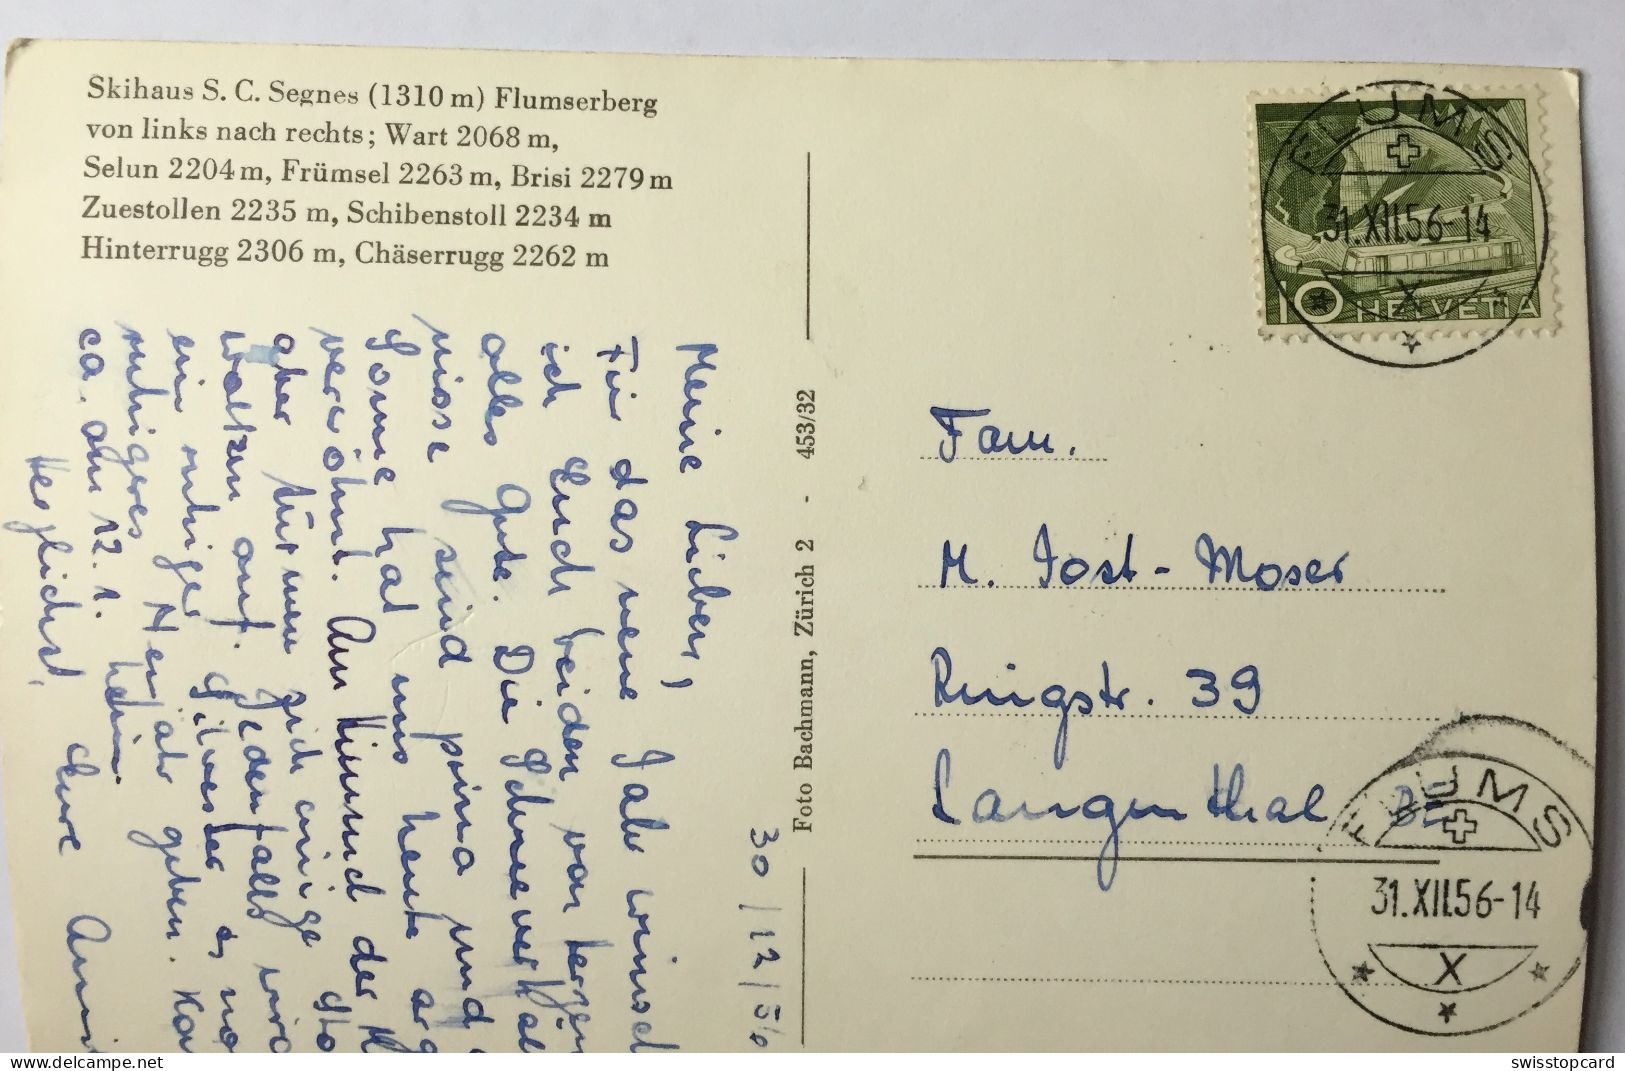 Skihaus S. C. Segnes (1310 m) Flumserberg
von links nach rechts; Wart 2068 m,
Selun 2204 m, Frümsel 2263 m, Brisi 2279 m
Zuestollen 2235 m, Schibenstoll 2234 m
Hinterrugg 2306 m, Chäserrugg 2262 m
30/12/56
Meine Lieben,
Für das neue Jahr wünsch
ich Euch beiden von
alles Gute. Die
sind prima und
Sonne hat uns heute arg
verwöhnt. Am Himmel der
aber türmen sich einige
Wolken auf. Jedenfalls wird
ein ruhiger Silvester &
ruhigeres Neujahr geben.
ca. am 12. 1. heim.
Herzlichst, Eure
Foto Bachmann, Zürich 2 - 453/32
FLUMS
31.XII.56-14
X
10 HELVETIA
Fam.
M. Jost-Moser
Ringstr. 39
Langenthal BE
FLUMS
31.XII.56-14
X
delcampe.net
swisstopcard